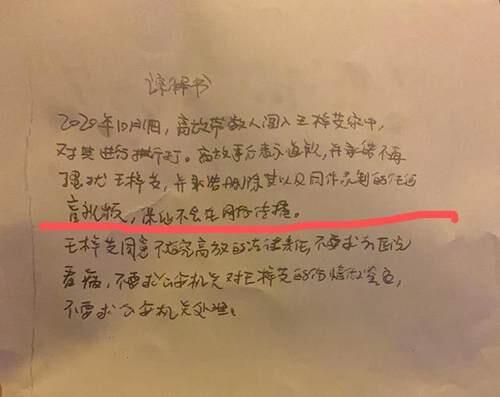 谅解书
2020年10月1日，高放带数人闯入王梓芠家中，
对其进行殴打。高放事后表示道歉，并承诺不再
骚扰王梓芠，并承诺删除其以及同伙录制的任何
音视频，保证不会在网络传播。
王梓芠同意不追究高放的法律责任，不要求去医院
看病，不要求公安机关对王梓芠的伤情做鉴定，
不要求公安机关处理。